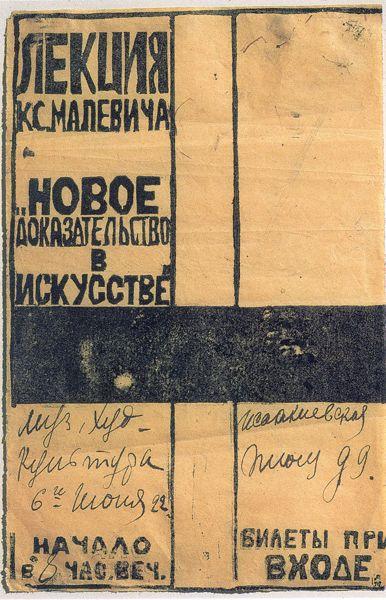 ЛЕКЦИЯ
К.С.МАЛЕВИЧА
„НОВОЕ
ДОКАЗАТЕЛЬСТВО
В
ИСКУССТВЕ"
Муз. Худ-
Культура
6го Июня 22.
Исаакиевская
площ 9.
НАЧАЛО
В 8 ЧАС. ВЕЧ.
БИЛЕТЫ ПРИ
ВХОДЕ.